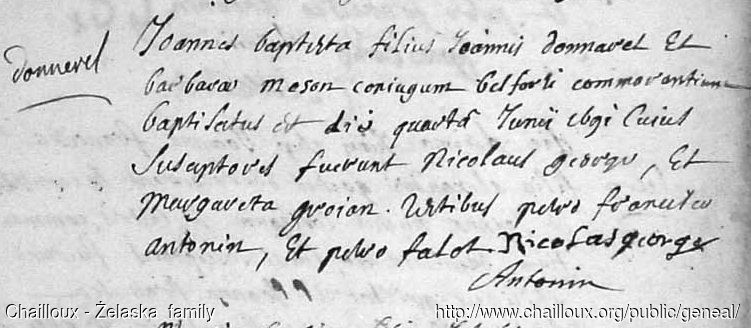 donnerel
Joannes baptista filius Joannis donnarel Et
barbarae meson coniugum belforti commorantium
baptisatus est die quarta Junii Cuius
Susceptores fuerunt Nicolaus george, Et
Margareta groian. testibus petro francisco
antonin, Et petro falot Nicolas george
Antonin
Chailloux - Żelaska family
http://www.chailloux.org/public/geneal/